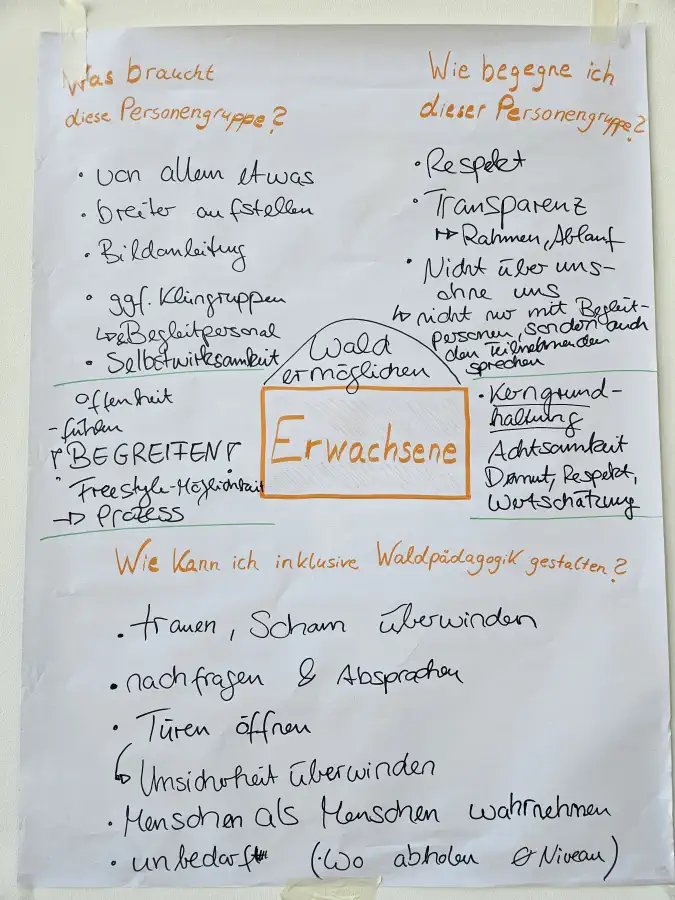 Was braucht
diese Personengruppe?
• von allem etwas
• breiter aufstellen
• Bildanleitung
• ggf. Kleingruppen
↳ Begleitpersonal
• Selbstwirksamkeit
Offenheit
- fühlen
BEGREIFEN
Freestyle-Möglichkeit
→ Prozess
Wie begegne ich
dieser Personengruppe?
• Respekt
• Transparenz
↦ Rahmen, Ablauf
• Nicht über uns -
ohne uns
↳ nicht nur mit Begleit-
personen, sondern auch
den Teilnehmenden
sprechen
• Kerngrund-
haltung
Achtsamkeit
Demut, Respekt,
Wertschätzung
Wald
ermöglichen
Erwachsene
Wie kann ich inklusive Waldpädagogik gestalten?
• trauen, Scham überwinden
• nachfragen & Absprachen
• Türen öffnen
↳ Unsicherheit überwinden
• Menschen als Menschen wahrnehmen
• unbedarft (Wo abholen Niveau)